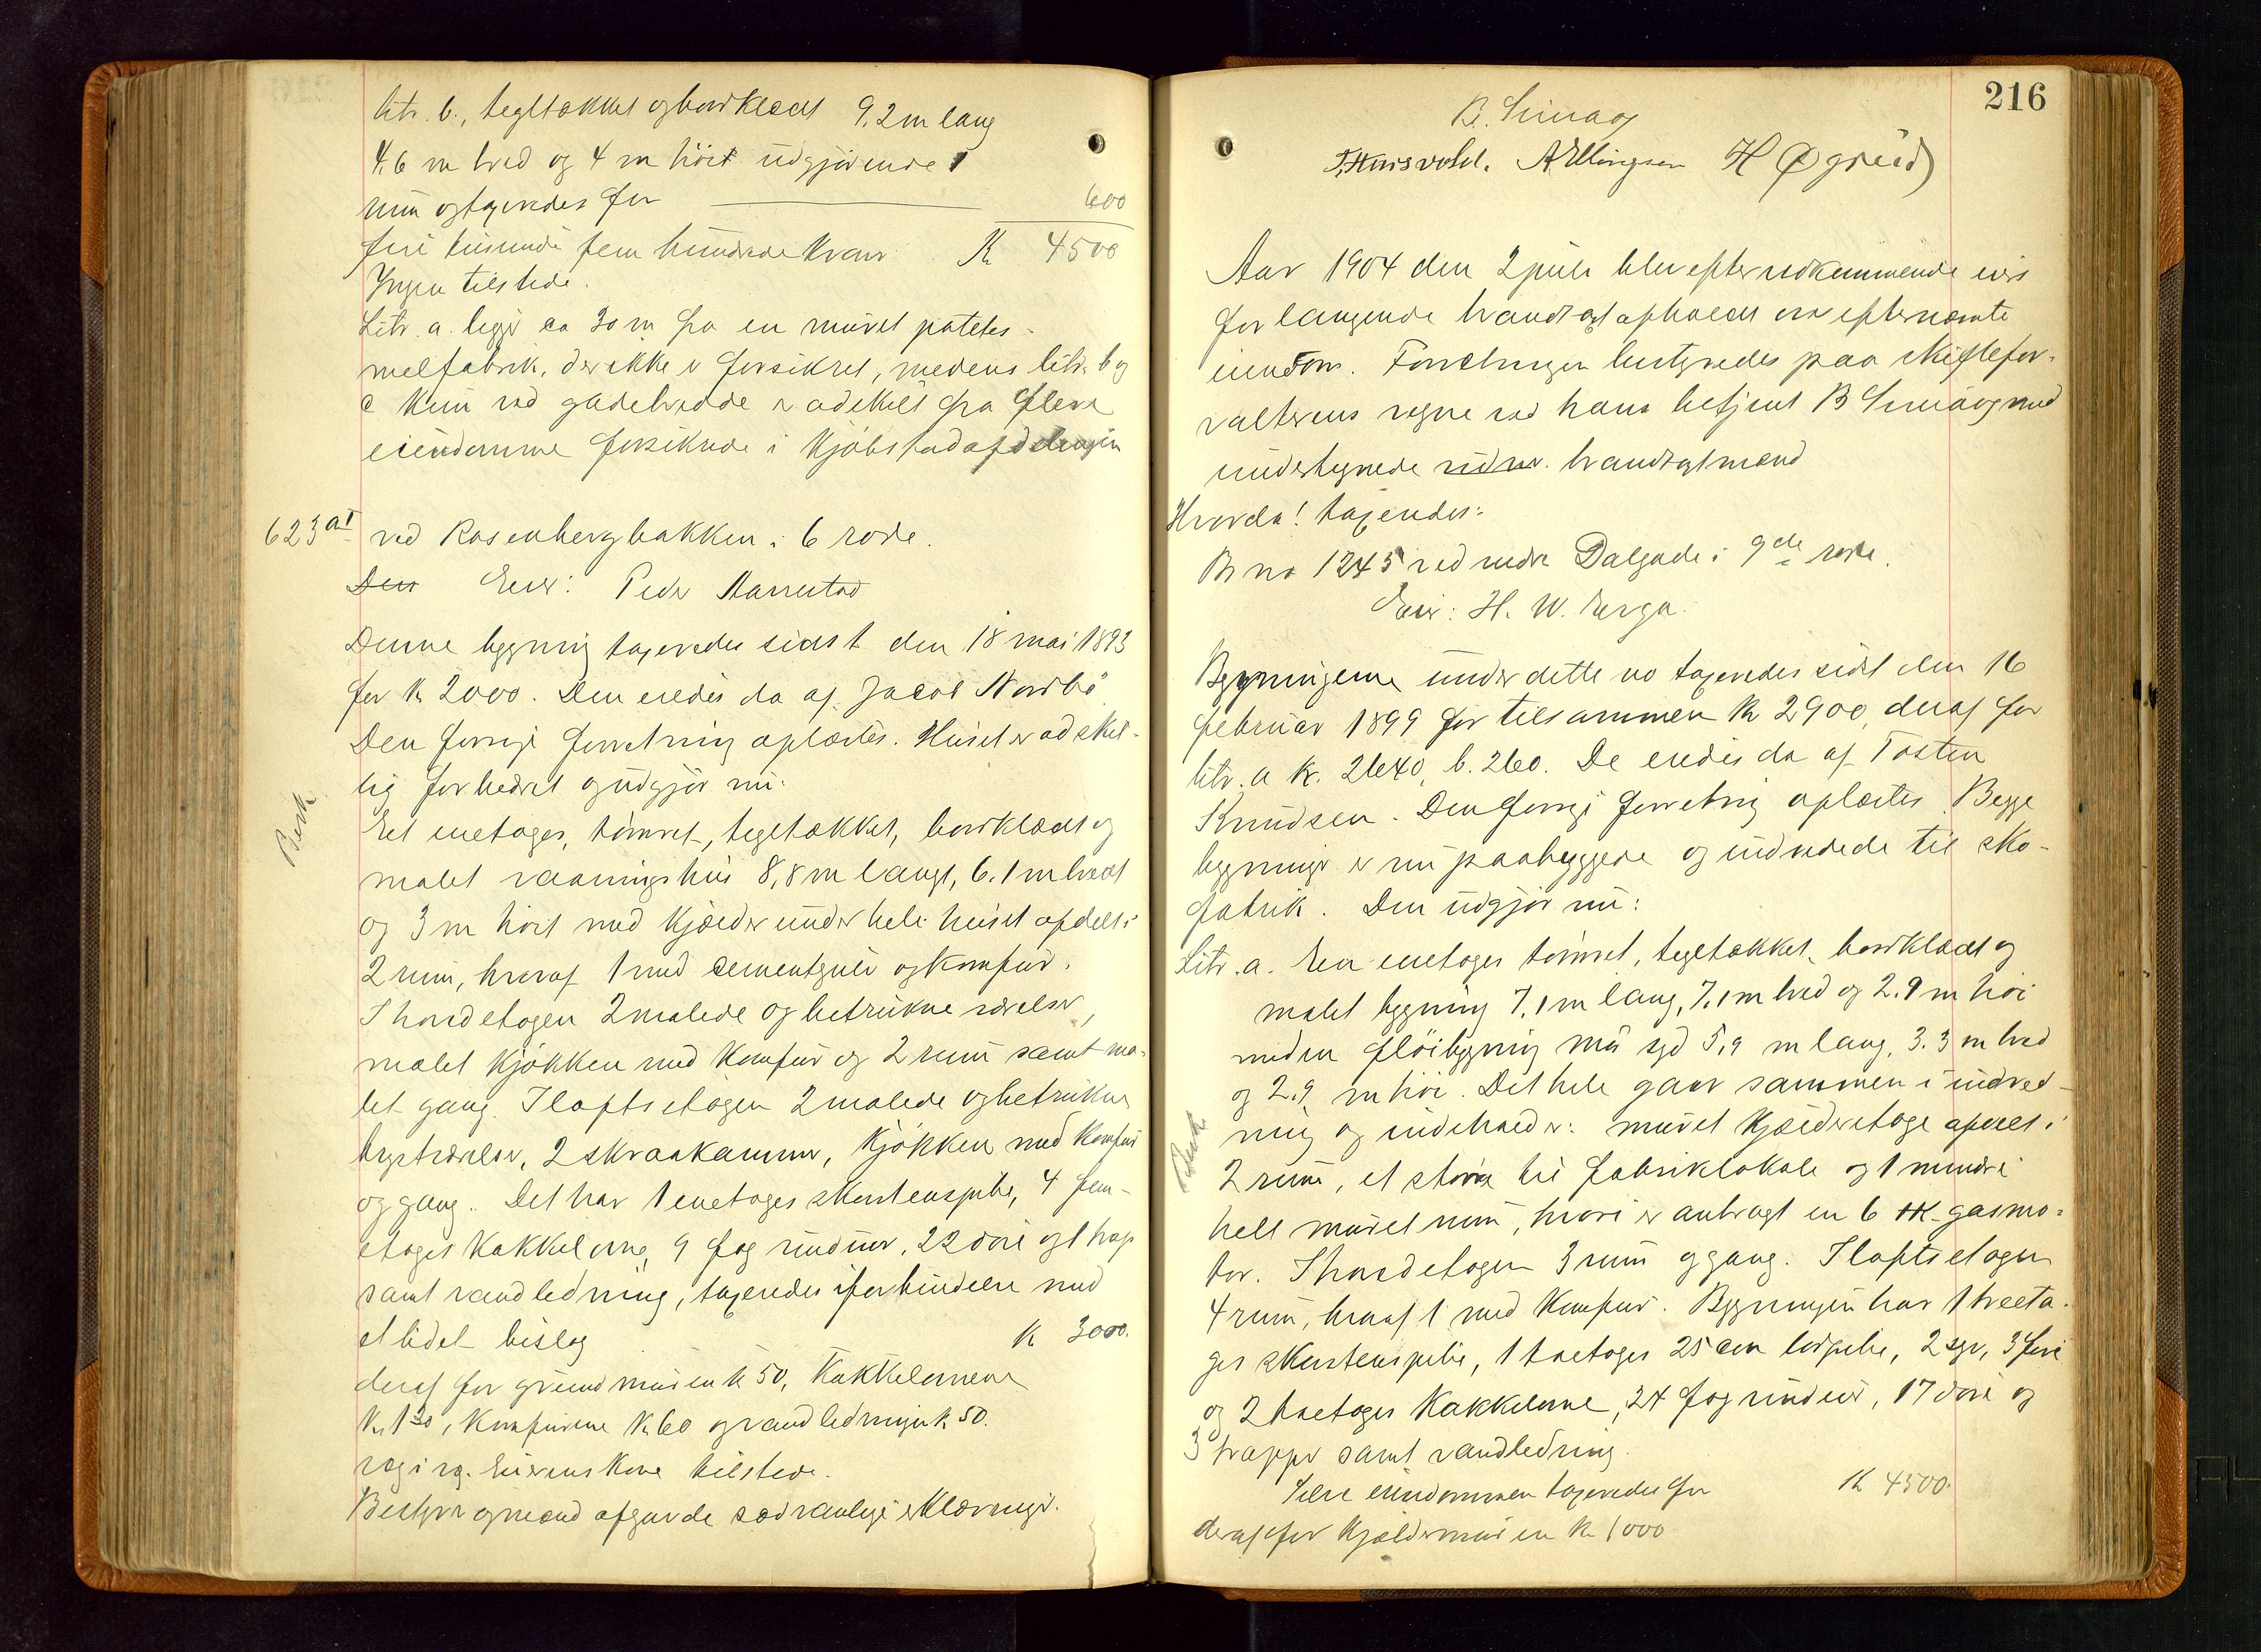 litr. b., tegltækket og bordklædt 9,2 m lang
4,6 m bred og 4 m höi udgjörende 1
rum og taxeredes for 600
fire tusinde fem hundrede kroner Kr 4500
Ingen tilstede.
Litr. a. ligger ca 30 m fra en muret potetes-
melfabrik, der ikke er forsikret, medens litr. b og
c kun ved gadebredde er adskilt fra flere
eiendomme forsikrede i Kjöbstadafdelingen
623 a1 ved Rosenbergbakken i 6 rode.
Den Eier: Peder Marrestad
Denne bygning taxeredes sidst den 18 mai 1893
for Kr 2000. Den eiedes da af Jacob Nordbö
Den forrige forretning oplæstes. Huset er adskil-
lig forbedret og udgjör nu:
Besk
Et enetages, tömret, tegltækket, bordklædt og
malet vaaningshus 8,8 m langt, 6.1 m bredt
og 3 m höit med kjælder under hele huset afdelt i
2 rum, hvoraf 1 med cementgulv og komfur.
I hovedetagen 2 malede og betrukne værelser,
malet kjökken med komfur og 2 rum samt ma-
let gang. I loftsetagen 2 malede og betrukne
kvistværelser, 2 skraakammer, kjökken med komfur
og gang. Det har 1 enetages skorstenspibe, 4 fem-
etages kakkelovne, 9 fag vinduer, 22 döre og 1 trap
samt vandledning, taxeredes i forbindelse med
et lidet bislag Kr 3000.
deraf for grundmuren k 50, kakkelovnene
Kr 120, komfurene Kr 60 og vandledningen k 50.
Eierens kone tilstede.
Bestyrer og mænd afgav de sædvanlige erklæringer.
216
B. Smaaog
T. Hursvold. A Ellingsen H Øgreid
Aar 1904 den 2 juli blev efter vedkommende eiers
forlangende brandtaxt afholdt over efternævnte
eiendom. Forretningen bestyredes paa skiftefor-
valterens vegne ved hans betjent B Smaaog med
undertegnede vidner. brandtaxtmænd
Hvorda! taxeredes:
Br no 1245 ved nedre Dalgade i 9de rode.
Eier: H. W. Erga.
Bygningerne under dette no taxeredes sidst den 16
februar 1899 for tilsammen Kr 2900, deraf for
litr. a Kr. 2640, b. 260. De eiedes da af Tosten
Knudsen. Den forrige forretning oplæstes. Begge
bygninger er nu paabyggede og indredede til sko-
fabrik. Den udgjör nu:
Litr. a. En enetages tömret, tegltækket, bordklædt og
malet bygning 7,1 m lang, 7,1 m bred og 2.9 m höi
med en flöibygning mod syd 5,9 m lang, 3.3 m bred
og 2,9 m höi. Det hele gaar sammen i indred-
Besk
ning og indeholder: muret kjælderetage afdelt i
2 rum, et större til fabriklokale og 1 mindre
helt muret rum, hvori er anbragt en 6 HK gasmo-
tor. I hovedetagen 3 rum og gang. I loftsetagen
4 rum, hvoraf 1 med komfur. Bygningen har 1 treeta-
ges skorstenspibe, 1 toetages 25 cm lerpibe, 2 syv, 3 fire
og 2 toetages kakkelovne, 24 fag vinduer, 17 döre og
3 trapper samt vandledning.
Hele eiendommen taxeredes for Kr 4500.
deraf for kjældermuren Kr 1000